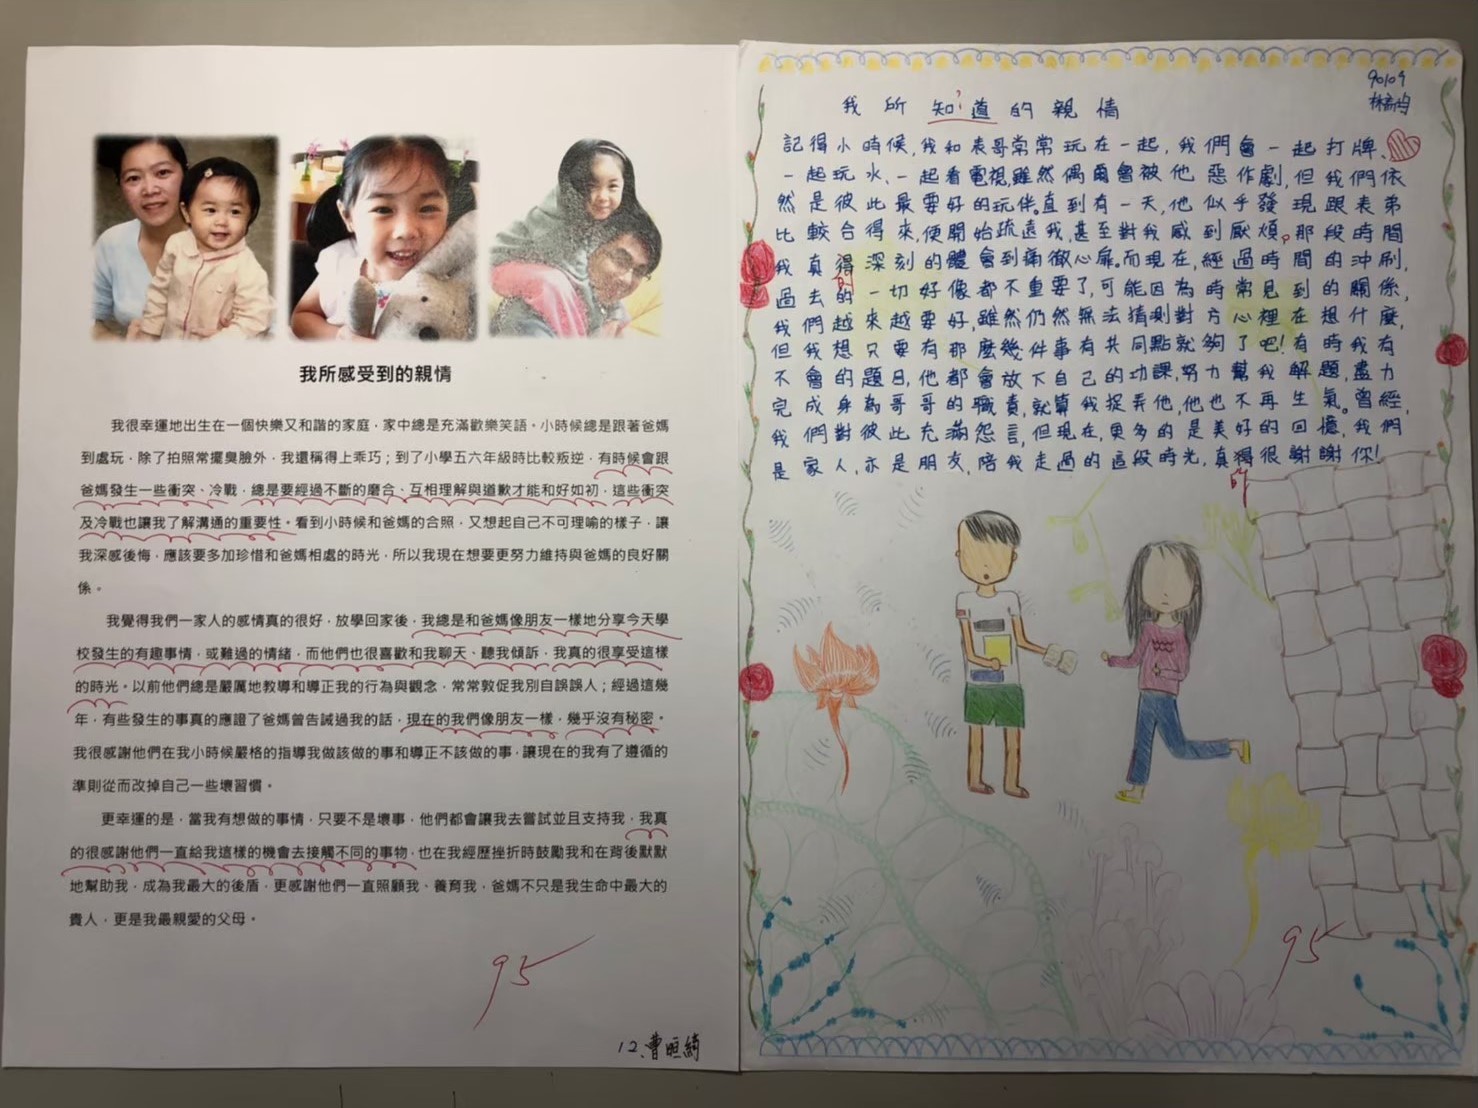 我所感受到的親情
我很幸運地出生在一個快樂又和諧的家庭，家中總是充滿歡樂笑語。小時候總是跟著爸媽
到處玩，除了拍照常擺臭臉外，我還稱得上乖巧；到了小學五六年級時比較叛逆，有時候會跟
爸媽發生一些衝突、冷戰，總是要經過不斷的磨合、互相理解與道歉才能和好如初，這些衝突
及冷戰也讓我了解溝通的重要性。看到小時候和爸媽的合照，又想起自己不可理喻的樣子，讓
我深感後悔，應該要多加珍惜和爸媽相處的時光，所以我現在想要更努力維持與爸媽的良好關
係。
我覺得我們一家人的感情真的很好，放學回家後，我總是和爸媽像朋友一樣地分享今天學
校發生的有趣事情，或難過的情緒，而他們也很喜歡和我聊天、聽我傾訴，我真的很享受這樣
的時光。以前他們總是嚴厲地教導和導正我的行為與觀念，常常敦促我別自誤誤人；經過這幾
年，有些發生的事真的應證了爸媽曾告誡過我的話，現在的我們像朋友一樣，幾乎沒有秘密。
我很感謝他們在我小時候嚴格的指導我做該做的事和導正不該做的事，讓現在的我有了遵循的
準則從而改掉自己一些壞習慣。
更幸運的是，當我有想做的事情，只要不是壞事，他們都會讓我去嘗試並且支持我，我真
的很感謝他們一直給我這樣的機會去接觸不同的事物，也在我經歷挫折時鼓勵我和在背後默默
地幫助我，成為我最大的後盾，更感謝他們一直照顧我、養育我，爸媽不只是我生命中最大的
貴人，更是我最親愛的父母。
95
12.曹
90109
林
我所知道的親情
?
記得小時候,我和表哥常常玩在一起,我們會一起打牌、
一起玩水、一起看電視,雖然偶爾會被他惡作劇,但我們依
然是彼此最要好的玩伴。直到有一天,他似乎發現跟表弟
比較合得來,便開始疏遠我,甚至對我感到厭煩。那段時間
我真得深刻的體會到痛徹心扉。而現在,經過時間的沖刷,
的
過去的一切好像都不重要了,可能因為時常見到的關係,
我們越來越要好,雖然仍然無法猜測對方心裡在想什麼,
但我想只要有那麼幾件事有共同點就夠了吧!有時我有
不會的題目,他都會放下自己的功課,努力幫我解題,盡力
完成身為哥哥的職責,就算我捉弄他,他也不再生氣。曾經,
我們對彼此充滿怨言,但現在,更多的是美好的回憶,我們
是家人,亦是朋友,陪我走過的這段時光,真得很謝謝你!
的
95